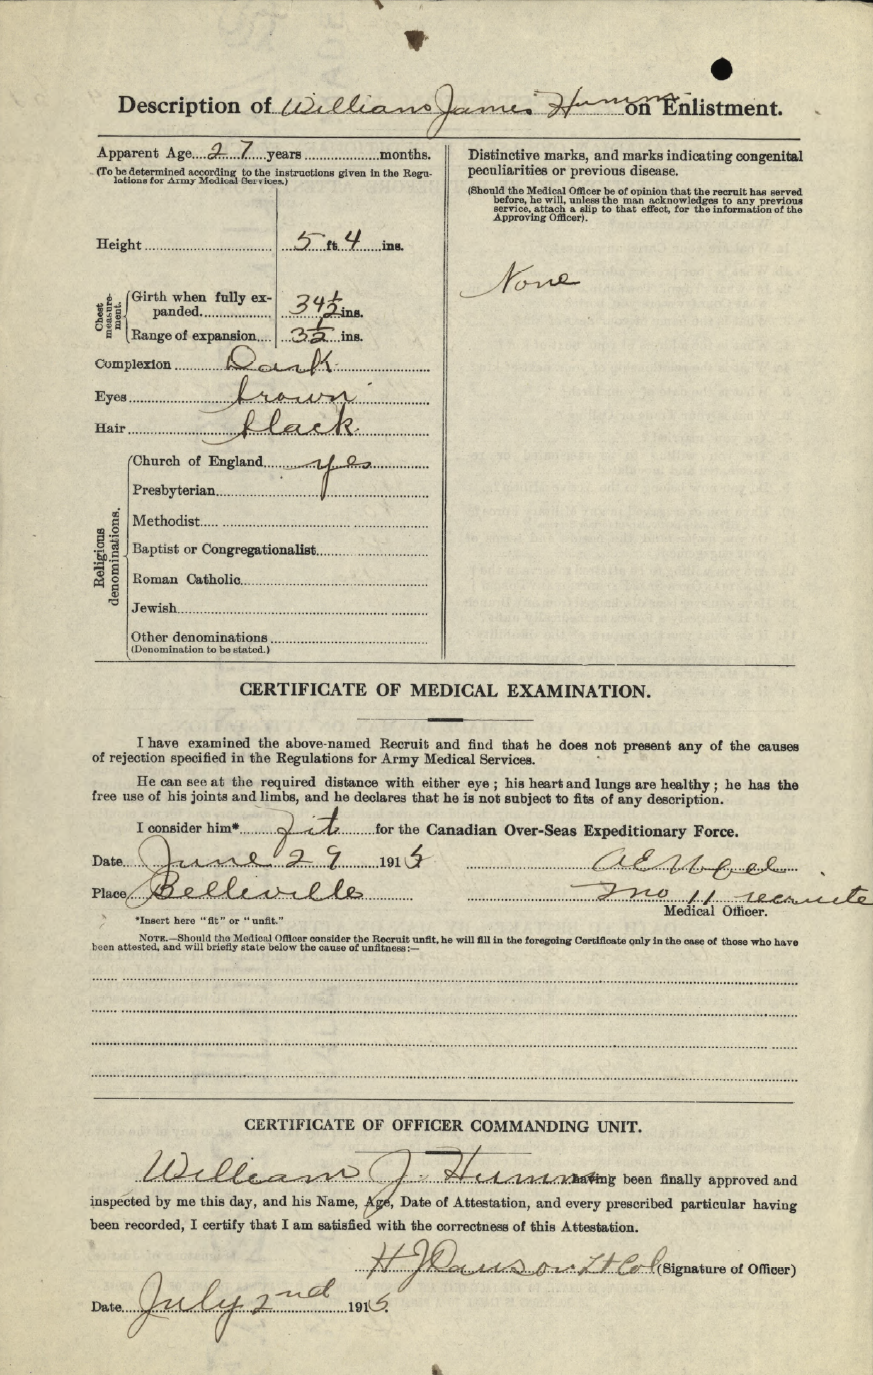 Description of William James Humm on Enlistment.
Apparent Age 27 years months.
(To be determined according to the instructions given in the Regu-
lations for Army Medical Services.)
Height 5 ft 4 ins.
Chest measure-ment.
Girth when fully ex-
panded 34½ ins.
Range of expansion 3½ ins.
Complexion Dark
Eyes brown
Hair black
Religious denominations.
Church of England yes
Presbyterian
Methodist
Baptist or Congregationalist
Roman Catholic
Jewish
Other denominations
(Denomination to be stated.)
Distinctive marks, and marks indicating congenital
peculiarities or previous disease.
(Should the Medical Officer be of opinion that the recruit has served
before, he will, unless the man acknowledges to any previous
service, attach a slip to that effect, for the information of the
Approving Officer).
None
CERTIFICATE OF MEDICAL EXAMINATION.
I have examined the above-named Recruit and find that he does not present any of the causes
of rejection specified in the Regulations for Army Medical Services.
He can see at the required distance with either eye ; his heart and lungs are healthy ; he has the
free use of his joints and limbs, and he declares that he is not subject to fits of any description.
I consider him* fit for the Canadian Over-Seas Expeditionary Force.
Date June 29 1915
Place Belleville 11 recruits
Medical Officer.
*Insert here "fit" or "unfit."
NOTE.—Should the Medical Officer consider the Recruit unfit, he will fill in the foregoing Certificate only in the case of those who have
been attested, and will briefly state below the cause of unfitness:—
CERTIFICATE OF OFFICER COMMANDING UNIT.
William J. Humm having been finally approved and
inspected by me this day, and his Name, Age, Date of Attestation, and every prescribed particular having
been recorded, I certify that I am satisfied with the correctness of this Attestation.
H J Dawson Lt Col (Signature of Officer)
Date July 2nd 1915